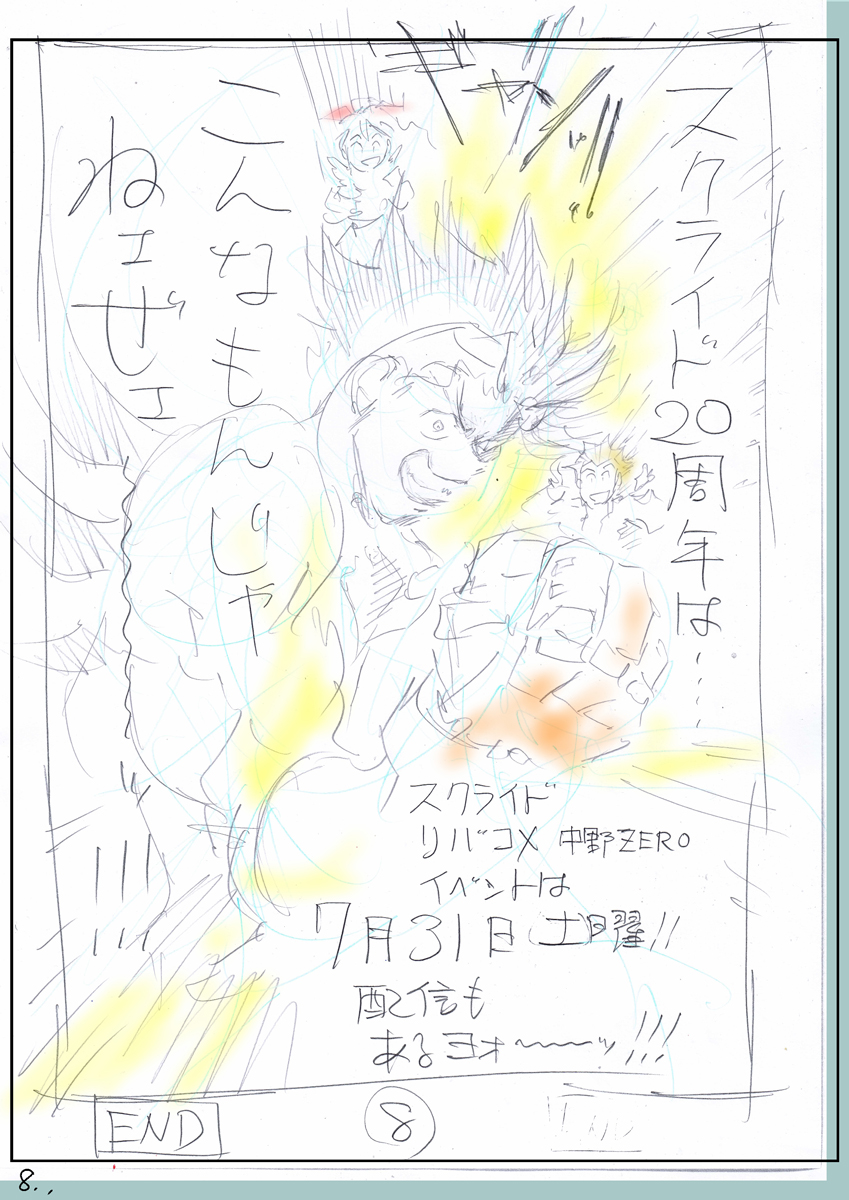 スクライド20周年は……
ギャン!!
こんなもんじゃ
ねェぜェ
〜〜〜!!!
スクライド
リバコメ 中野ZERO
イベントは
7月31日(土)曜!!
配信も
あるヨォ〜〜〜ッ!!!
END
8
8.